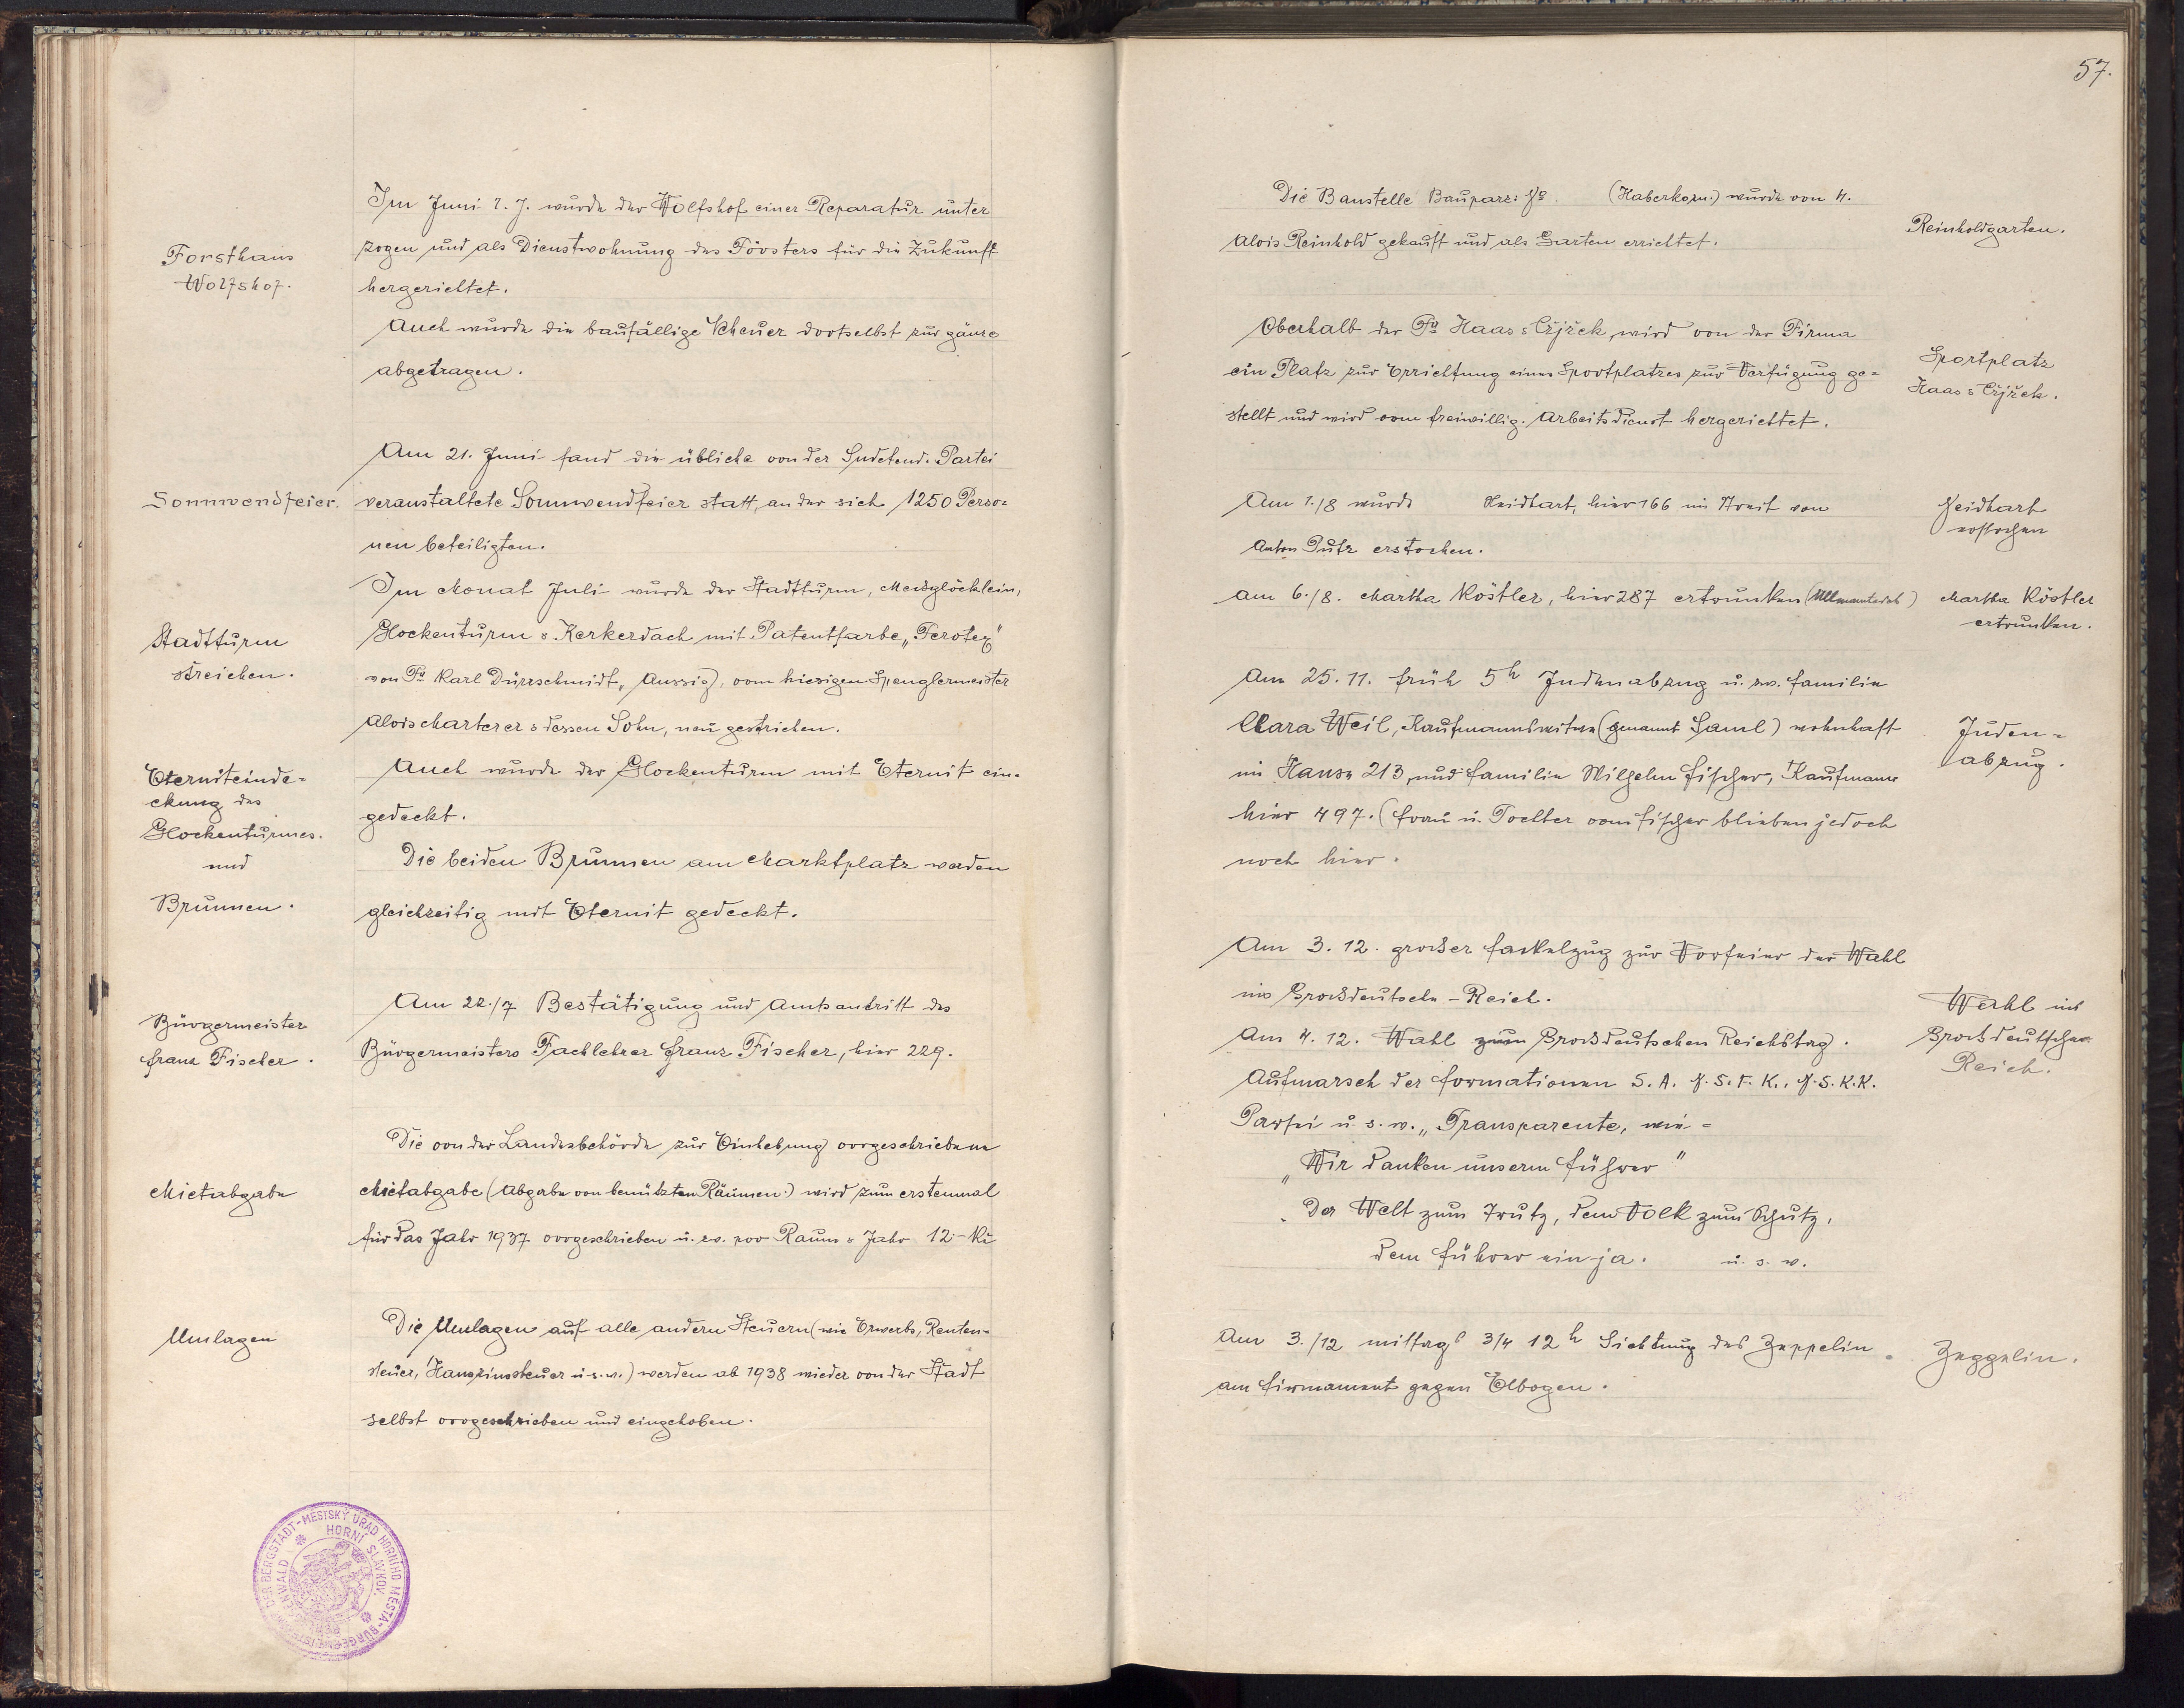 Im Juni l. J. wurde der Wolfshof einer Reparatur unter
Forsthaus
Wolfshof.
zogen und als Dienstwohnung des Försters für die Zukunft
hergerichtet.
Auch wurde die baufällige Scheuer dortselbst zur gänze
abgetragen.
Am 21. Juni fand die übliche von der Sudetend. Partei
Sonnwendfeier.
veranstaltete Sonnwendfeier statt, an der sich 1250 Perso=
nen beteiligten.
Im Monat Juli wurde der Stadtturm,
Stadtturm
streichen.
Glockenturm & Kerkerdach mit Patentfarbe „Ferotex"
von Fa Karl Dürrschmidt, Aussig, vom hiesigen Spenglermeister
Alois Marterer & dessen Sohn, neu gestrichen.
Eterniteinde=
ckung des
Glockenturmes.
und
Brunnen.
Auch wurde der Glockenturm mit Eternit ein-
gedeckt.
Die beiden Brunnen am Marktplatz werden
gleichzeitig mit Eternit gedeckt.
Bürgermeister
Franz Fischer.
Am 22./7 Bestätigung und Amtsantritt des
Bürgermeisters Fachlehrer Franz Fischer, hier 229.
Die von der Landesbehörde zur Einhebung vorgeschriebene
Mietabgabe
Mietabgabe (Abgabe von benützten Räumen.) wird zum erstenmal
für das Jahr 1937 vorgeschrieben u. zw. pro Raum & Jahr 12.- Kč
Umlagen
Die Umlagen auf alle andern Steuern (wie Erwerbs, Renten=
steuer, Hauszinssteuer u. s. w.) werden ab 1938 wieder von der Stadt
selbst vorgeschrieben und eingehoben.
BÜRGERMEISTERAMT DER BERGSTADT - MĚSTSKÝ ÚŘAD HORNÍHO MĚSTA
HORNÍ SLAVKOV.
57.
Die Baustelle Bauparz: No. (Haberkorn.) wurde von H.
Reinholdgarten.
Alois Reinhold gekauft und als Garten errichtet.
Oberhalb der Fa Haas & Cžjžek, wird von der Firma
Sportplatz
Haas & Cžjžek.
ein Platz zur Errichtung eines Sportplatzes zur Verfügung ge=
stellt und wird vom freiwillig. Arbeitsdienst hergerichtet.
Am 1./8 wurde Neidhart, hier 166 im Streit von
Neidhart
erstochen
Anton Putz erstochen.
Am 6./8. Martha Köstler, hier 287 ertrunken
Martha Köstler
ertrunken.
Am 25. 11. früh 5h Judenabzug u. zw. Familie
Klara Weil, Kaufmannswitwe (genannt Saml) wohnhaft
Juden=
abzug.
im Hause 213, und Familie Wilhelm Fischer, Kaufmann
hier 497. (Frau u. Tochter vom Fischer blieben jedoch
noch hier.
Am 3. 12. großer Fackelzug zur Vorfeier der Wahl
ins Großdeutsche - Reich.
Wahl ins
Großdeutsche
Reich.
Am 4. 12. Wahl zum Großdeutschen Reichstag.
Aufmarsch der Formationen S. A. N. S. F. K., N. S. K. K.
Partei u. s. w. „Transparente, wie =
„Wir danken unserm Führer"
Der Welt zum Trutz, dem Volk zum Schutz,
dem Führer ein ja. u. s. w.
Am 3./12 mittags 3/4 12h Sichtung des Zeppelin
Zeppelin.
am Firmament gegen Elbogen.